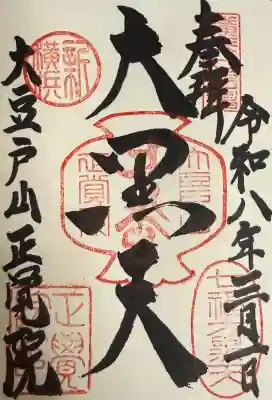 奉拝
令和八年三月一日
大黒天
大豆戸山正覚院
新横浜
正覚